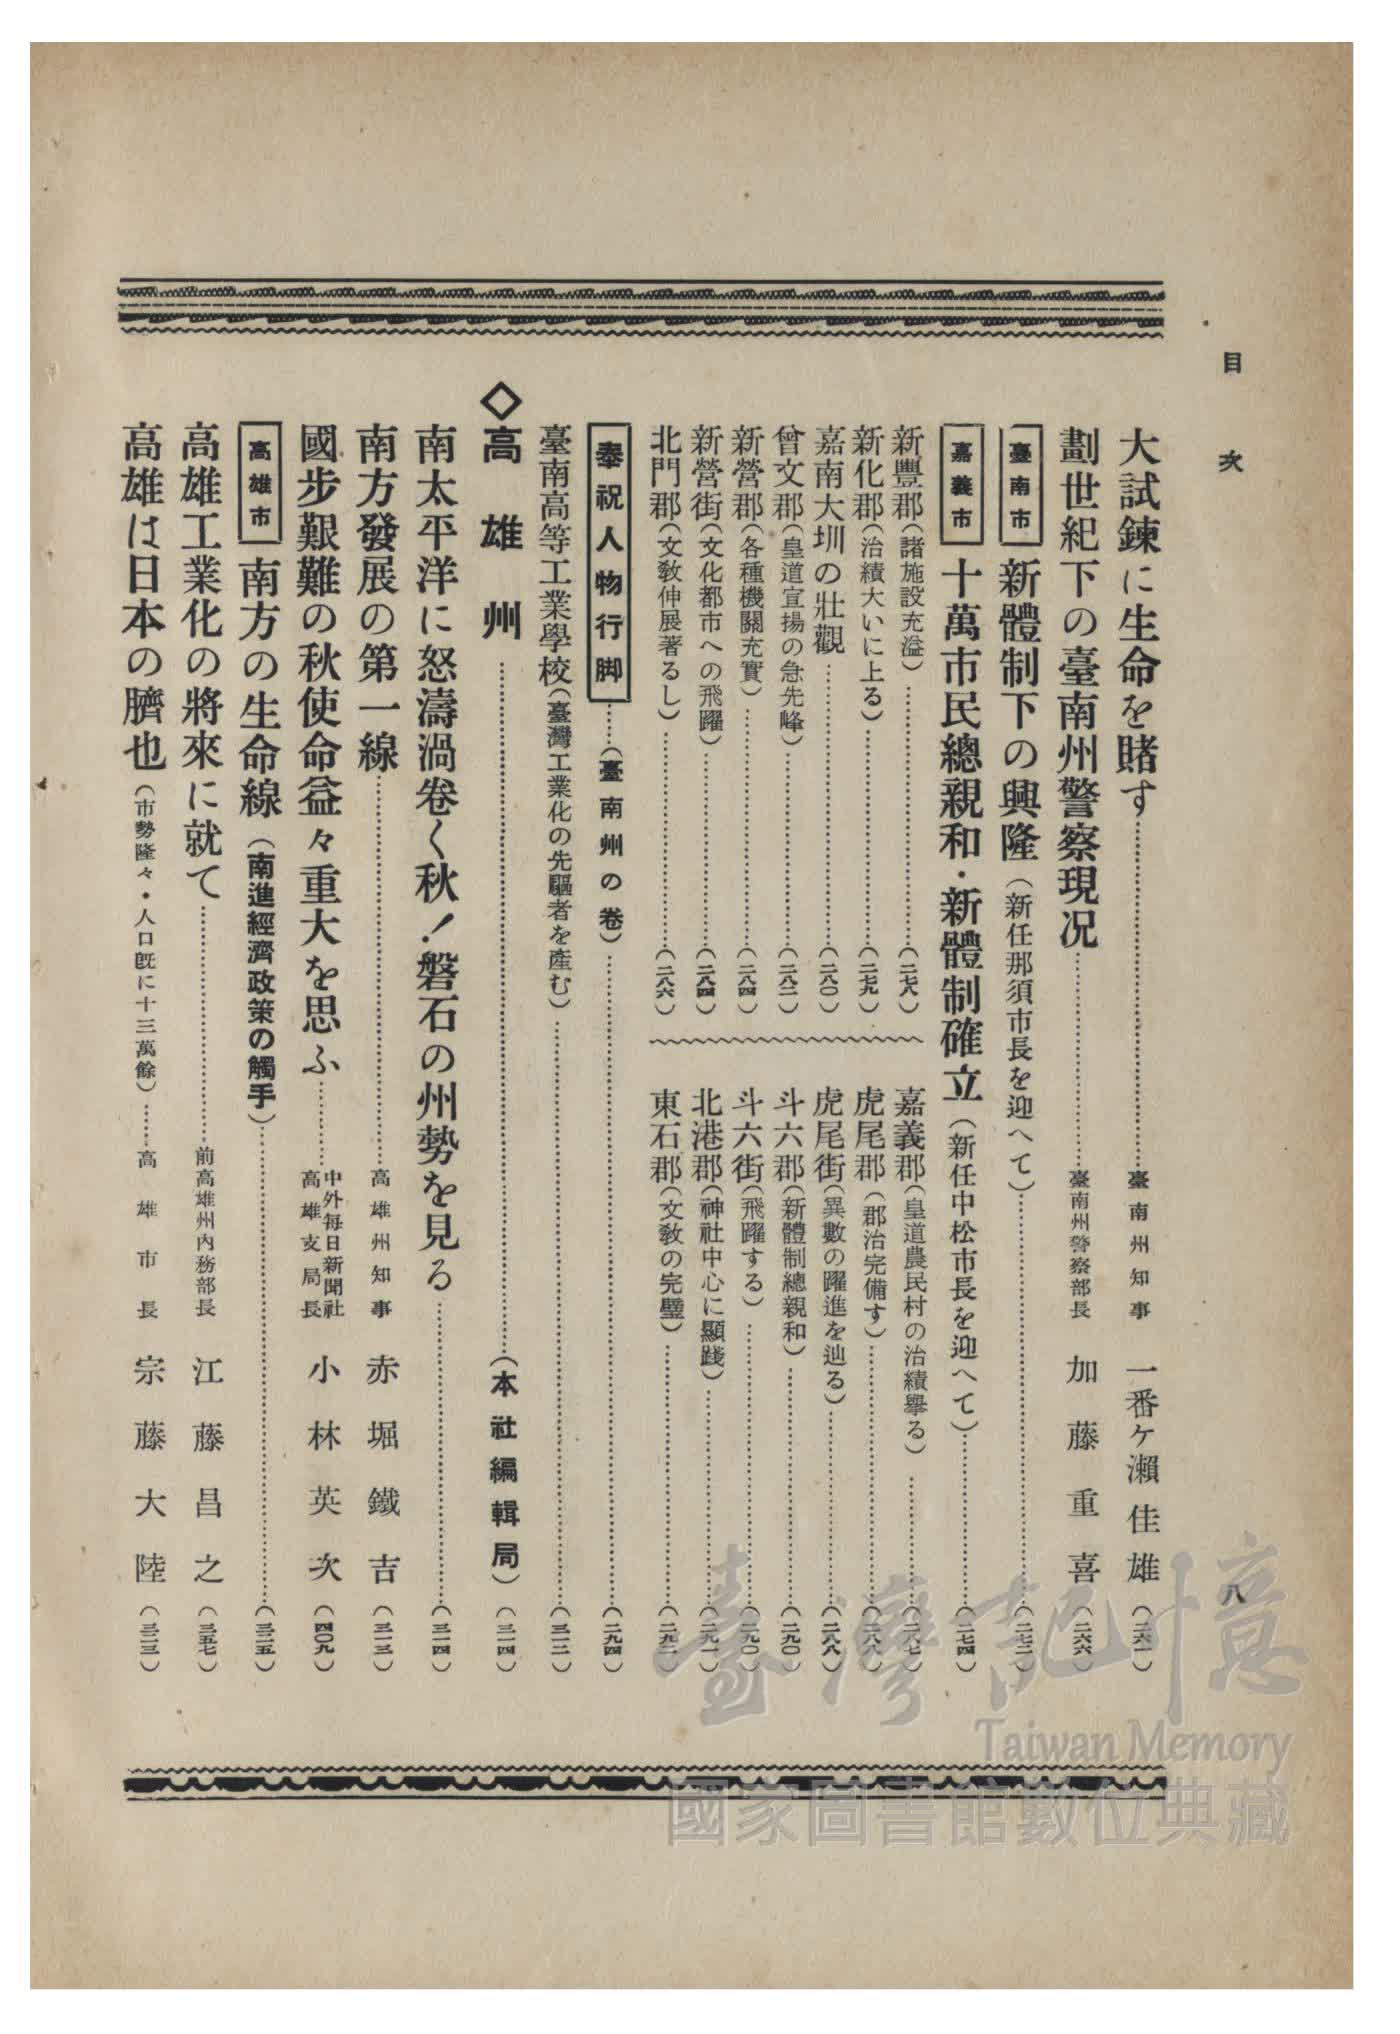 目次
八
大試鍊に生命を賭す……臺南州知事 一番ケ瀨佳雄(二六一)
劃世紀下の臺南州警察現況……臺南州警察部長 加藤重喜(二六六)
臺南市 新體制下の興隆(新任那須市長を迎へて)……(二七二)
嘉義市 十萬市民總親和・新體制確立(新任中松市長を迎へて)……(二七四)
新豐郡(諸施設充溢)……(二七八)
新化郡(治績大いに上る)……(二七九)
嘉南大圳の壯觀……(二八〇)
曾文郡(皇道宣揚の急先峰)……(二八二)
新營郡(各種機關充實)……(二八四)
新營街(文化都市への飛躍)……(二八四)
北門郡(文敎伸展著るし)……(二八六)
嘉義郡(皇道農民村の治績擧る)……(二八七)
虎尾郡(郡治完備す)……(二八八)
虎尾街(異數の躍進を辿る)……(二八八)
斗六郡(新體制總親和)……(二九〇)
斗六街(飛躍する)……(二九〇)
北港郡(神社中心に顯踐)……(二九一)
東石郡(文敎の完璧)……(二九二)
奉祝人物行脚……(臺南州の卷)……(二九四)
臺南高等工業學校(臺灣工業化の先驅者を産む)……(三一二)
◇高雄州……(本社編輯局)(三一四)
南太平洋に怒濤渦卷く秋!磐石の州勢を見る……(三一四)
南方發展の第一線……高雄州知事 赤堀鐵吉(三一三)
國步艱難の秋使命益々重大を思ふ……中外每日新聞社高雄支局長 小林英次(四〇九)
高雄市 南方の生命線(南進經濟政策の觸手)……(三二五)
高雄工業化の將來に就て……前高雄州內務部長 江藤昌之(三五七)
高雄は日本の臍也(市勢隆々・人口旣に十三萬餘)……高雄市長 宗藤大陸(三二三)
臺灣記憶
Taiwan Memory
國家圖書館數位典藏